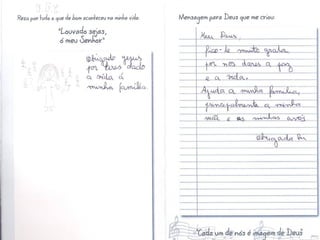 Rezo por tudo o que de bom aconteceu na minha vida.
"Louvado sejas,
ó meu Senhor"
Obrigado Jesus
por teres dado
a vida á
minha família
Mensagem para Deus que me criou:
Meu Deus,
fico-te muito grata
por nos dares a paz
e a vida.
Ajuda a minha família,
principalmente a minha
mãe e os meus avós
Obrigada
"Cada um de nós é imagem de Deus"